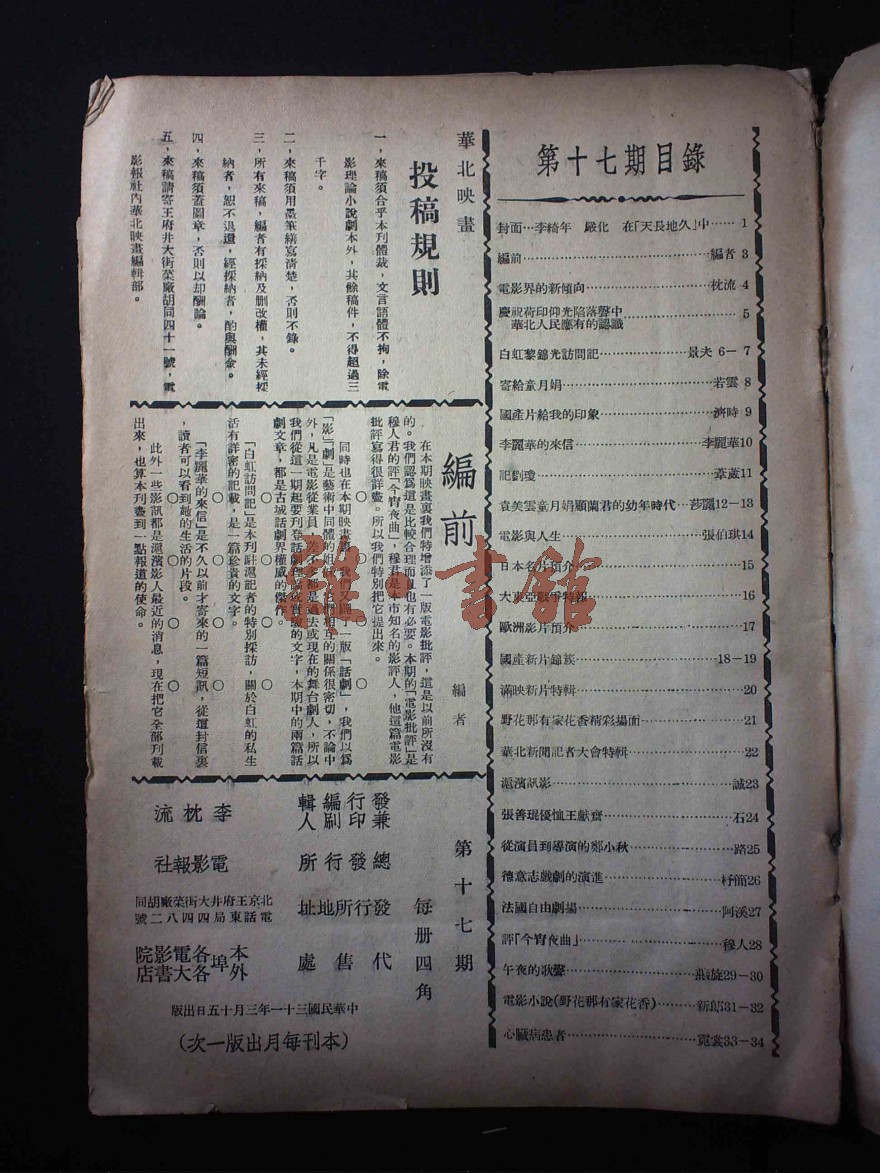 第十七期目錄
封面…李綺年 嚴化 在「天長地久」中…… 1
編前……編者 3
電影界的新傾向……枕流 4
慶祝荷印仰光陷落聲中
華北人民應有的認識…… 5
白虹黎錦光訪問記……景夫 6－7
寄給童月娟……若雲 8
國產片給我的印象……濟時 9
李麗華的來信……李麗華10
記劉瓊……葦葳11
袁美雲童月娟顧蘭君的幼年時代…莎麗12－13
電影與人生……張伯琪14
日本名片預介……15
大東亞戰爭特報……16
歐洲影片預介……17
國產新片錦簇……18－19
滿映新片特輯……20
野花那有家花香精彩場面……21
華北新聞記者大會特輯……22
滬濱訊影……誠23
張善琨優恤王獻齋……石24
從演員到導演的鄭小秋……路25
德意志戲劇的演進……杼簡26
法國自由劇場……阿溪27
評「今宵夜曲」……穆人28
午夜的歌聲……張旋29－30
電影小說(野花那有家花香)……新郎31－32
心臟病患者……霓裳33－34
華北映畫
投稿規則
一，來稿須合乎本刊體裁，文言語體不拘，除電
影理論小說劇本外，其餘稿件，不得超過三
千字。
二，來稿須用墨筆繕寫清楚，否則不錄。
三，所有來稿，編者有採納及刪改權，其未經採
納者，恕不退還，經採納者，酌與酬金。
四，來稿須蓋圖章，否則以却酬論。
五，來稿請寄王府井大街菜廠胡同四十一號，電
影報社內華北映畫編輯部。
編前
編者
在本期映畫裏我們特增添了一版電影批評，這是以前所沒有
的。我們認爲這是比較合理而且也有必要。本期的「電影批評」是
穆人君的評「今宵夜曲」，穆君是本市知名的影評人，他這篇電影
批評寫得很詳盡。所以我們特別把它提出來。
○ ○ ○ ○
同時也在本期映畫裏，我們又開了一版「話劇」，我們以爲
「影」「劇」是藝術中同體的姐妹，它們相互的關係很密切，不論中
外，凡是電影從業員，差不多都是過去或現在的舞台劇人，所以
我們從這一期起要刊登話劇理論或實驗的文字，本期中的兩篇話
劇文章，都是古城話劇界權威的傑作。
○ ○ ○ ○
「白虹訪問記」是本刊駐滬記者的特別採訪，關於白虹的私生
活有詳密的記載，是一篇珍貴的文字。
○ ○ ○ ○
「李麗華的來信」是不久以前才寄來的一篇短訊，從這封信裏
，讀者可以看到她的生活的片段。
○ ○ ○ ○
此外一些影訊都是滬濱影人最近的消息，現在把它全部刊載
出來，也算本刊盡到一點報道的使命。
第十七期
每册四角
發行兼編輯印刷人 李枕流
總發行所 電影報社
發行所地址 北京王府井大街菜廠胡同
電話東局四四八二號
代售處 本外埠各電影院各大書店
中華民國三十一年三月十五日出版
（本刊每月出版一次）
雅書館